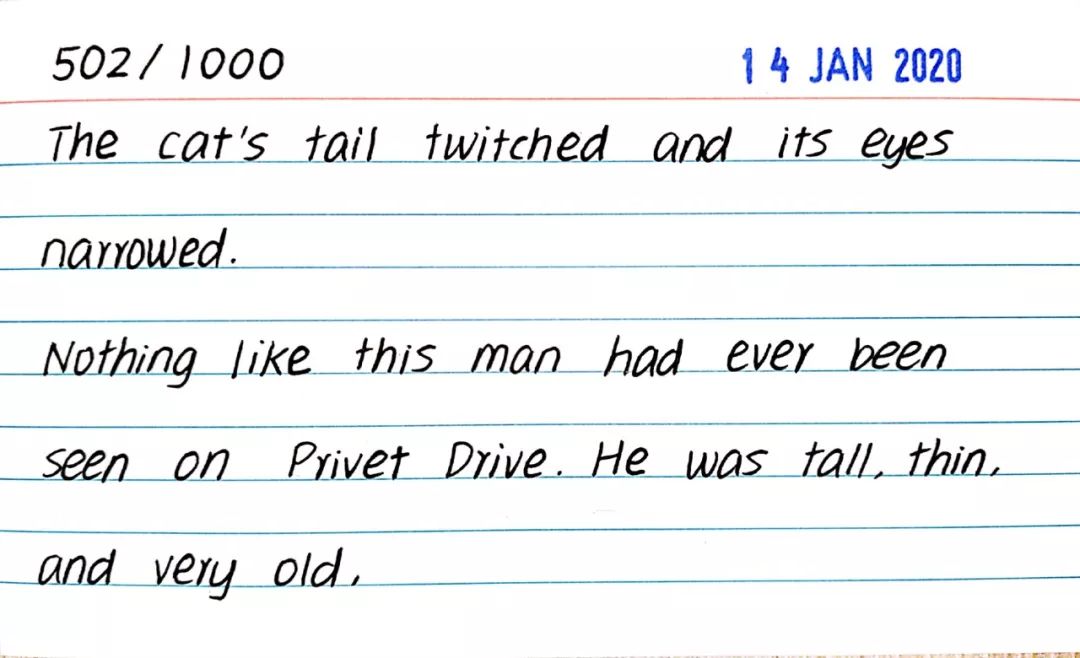 502/1000 14 JAN 2020
The cat's tail twitched and its eyes
narrowed.
Nothing like this man had ever been
seen on Privet Drive. He was tall, thin,
and very old,